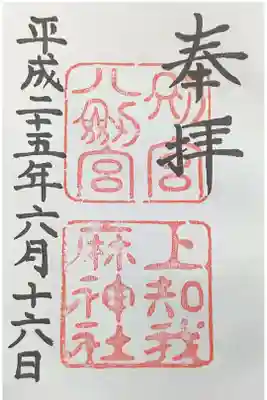 奉拝
別宮
八剣宮
上知我
麻神社
平成二十五年六月十六日